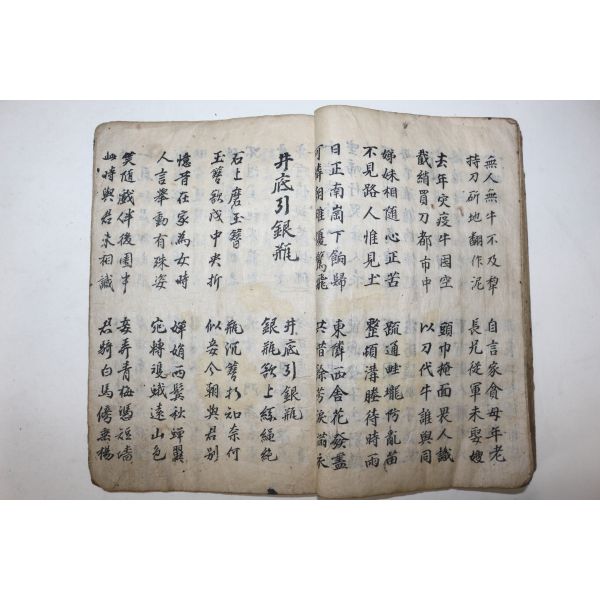 無人無牛不及犂
持刀斫地翻作泥
自言家貧母年老
長兄從軍未娶嫂
去年灾疫牛囷空
截絹買刀都市中
頭巾掩面畏人識
以刀代牛誰與同
姊妹相随心正苦
不見路人惟見土
疏通畦壠防亂苗
整頓溝塍待時雨
日正南崗下餉歸
可憐朝雉擾驚飛
東隣西舍花發盡
共昔餘芳淚滿衣
井底引銀瓶
井底引銀瓶
銀瓶欲上絲繩絶
石上磨玉簪
玉簪欲成中央折
瓶沉簪折知奈何
似妾今朝與君別
憶昔在家為女時
人言舉動有殊姿
嬋娟兩鬢秋蟬翼
宛轉雙蛾遠山色
笑随戲伴後園中
此時與君未相識
妾弄青梅憑短墻
君騎白馬傍垂楊